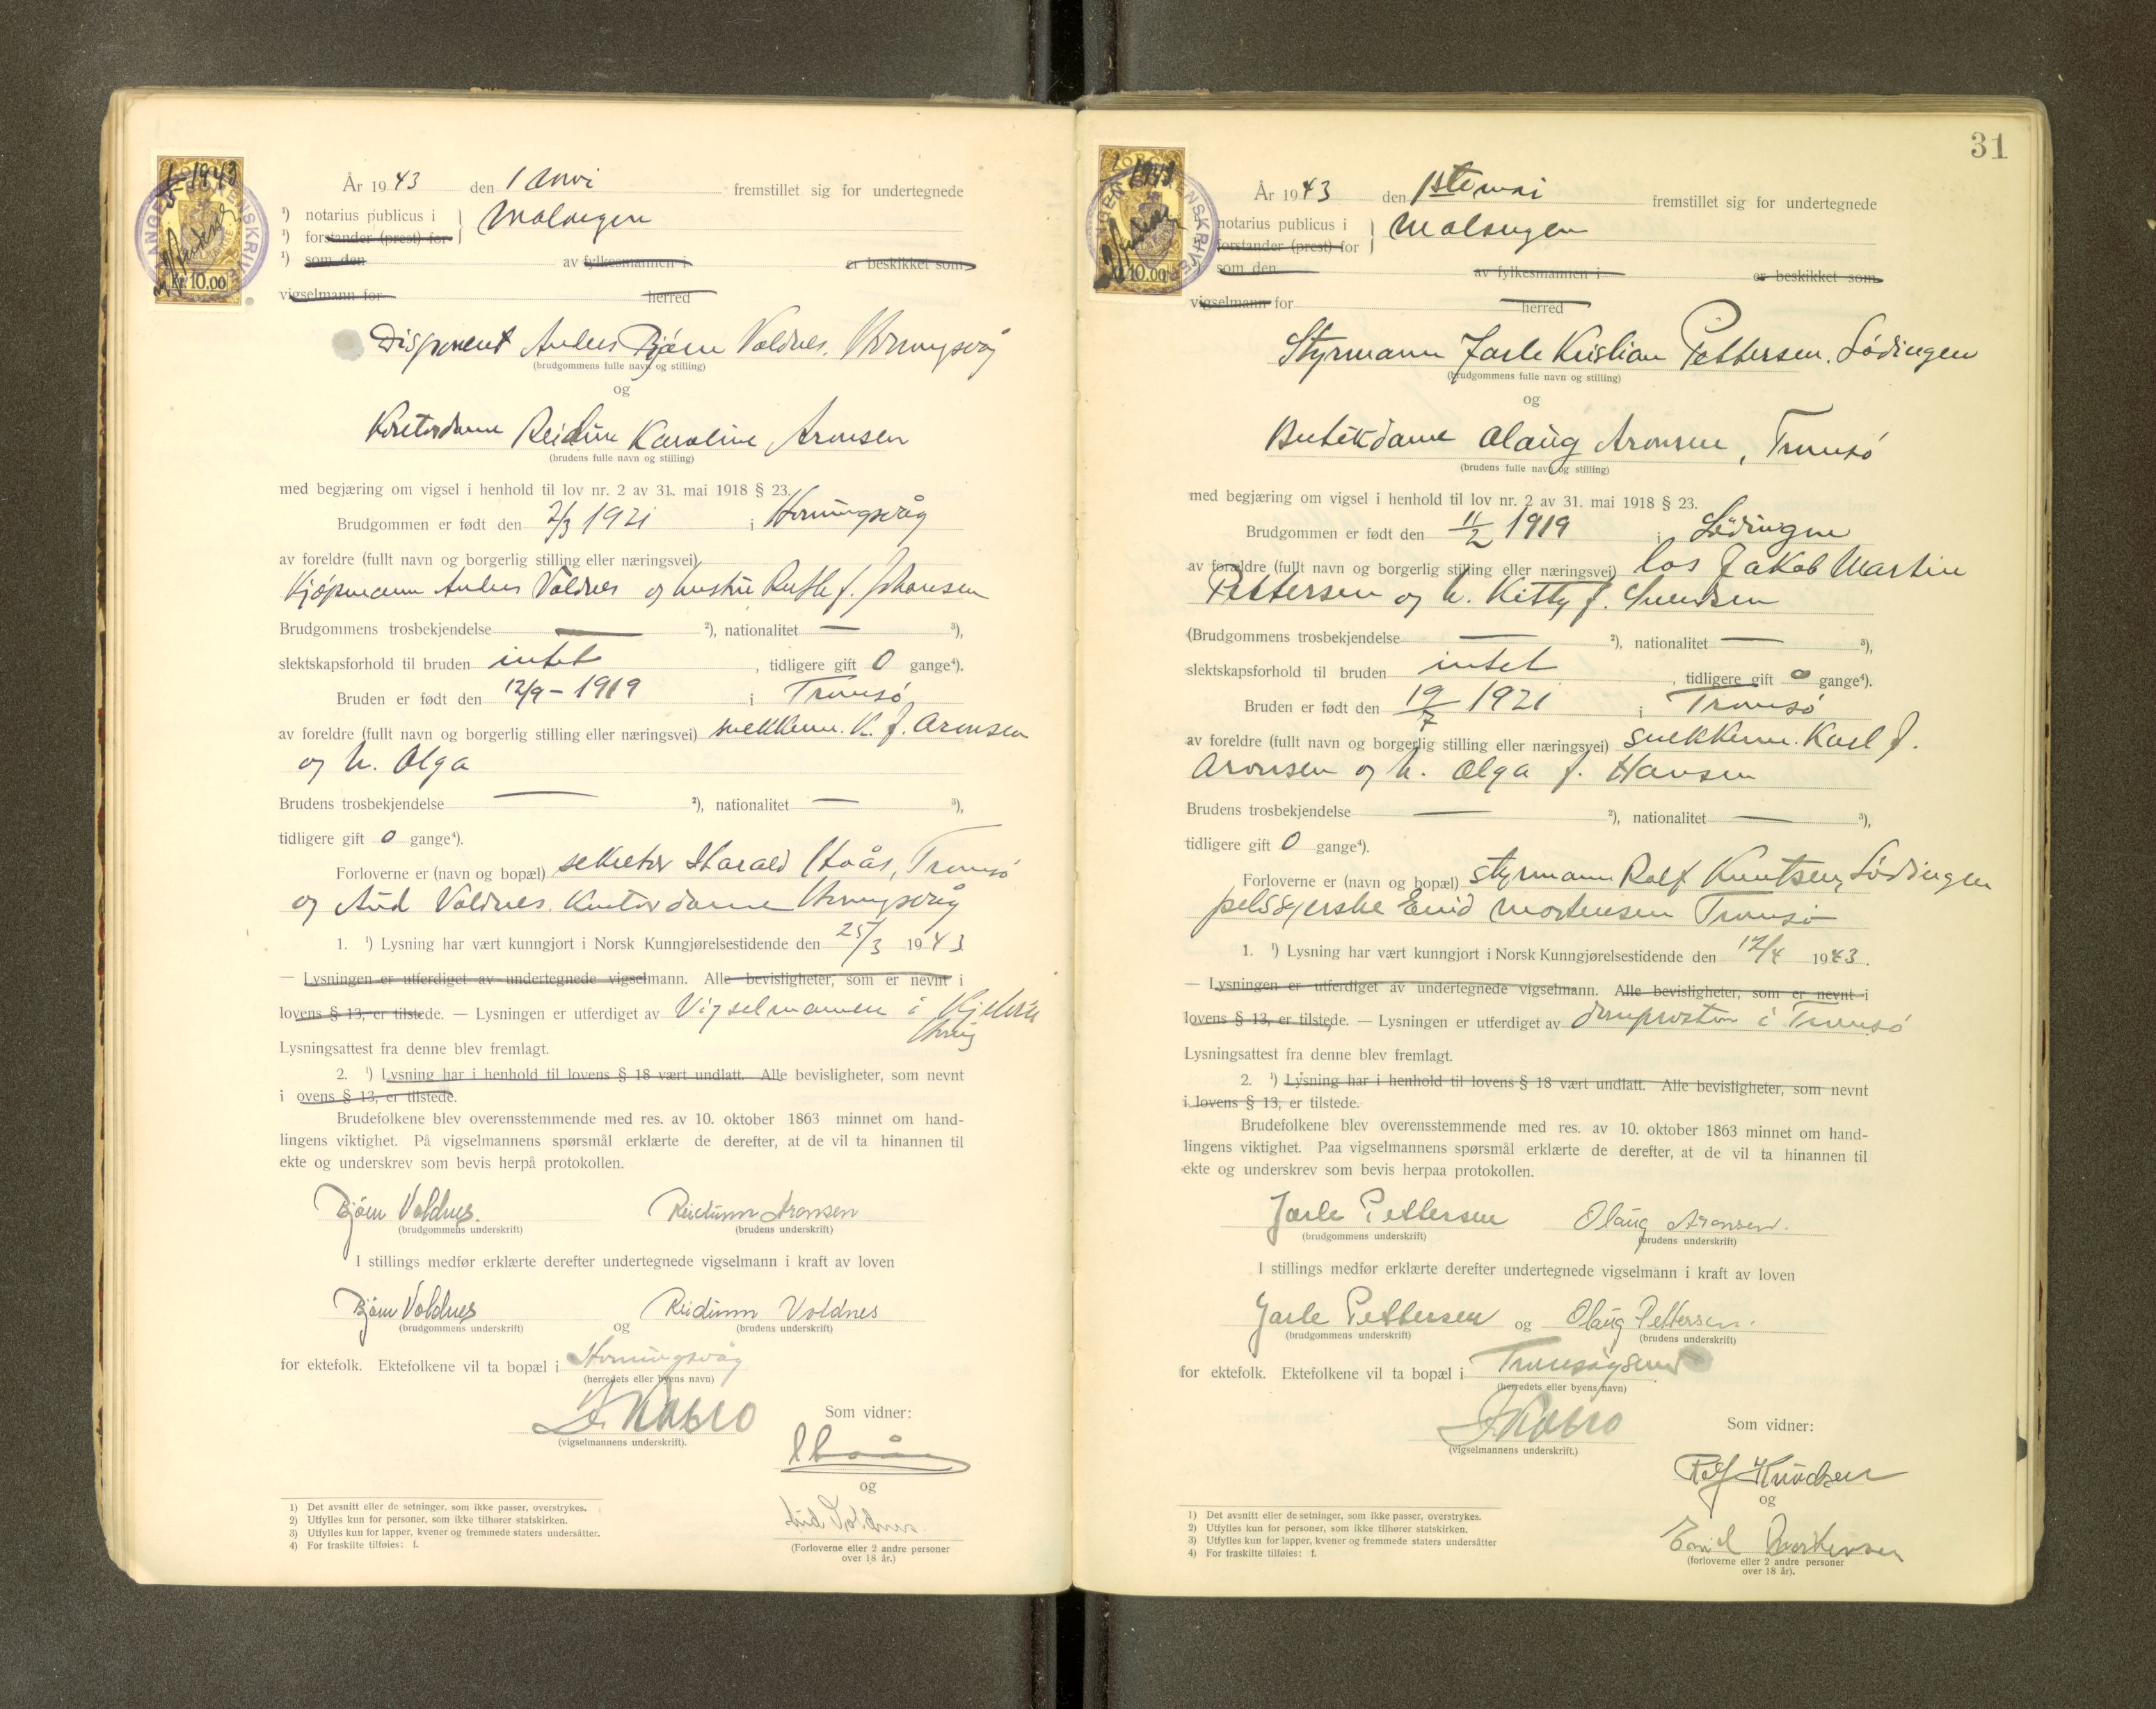 År 1943 den 1 mai fremstillet sig for undertegnede
¹) notarius publicus i Malangen
¹) forstander (prest) for
¹) som den av fylkesmannen i er beskikket som
vigselmann for herred
Kr. 10.00
Disponent Anders Bjørn Voldnes, Honningsvåg
(brudgommens fulle navn og stilling)
og
Kontordame Reidun Karoline Aronsen
(brudens fulle navn og stilling)
med begjæring om vigsel i henhold til lov nr. 2 av 31. mai 1918 § 23.
Brudgommen er født den 2/3 1921 i Honningsvåg
av foreldre (fullt navn og borgerlig stilling eller næringsvei)
Kjøpmann Anders Voldnes og hustru Ruth f. Johansen
Brudgommens trosbekjendelse — ²), nationalitet — ³),
slektskapsforhold til bruden intet, tidligere gift 0 gange⁴).
Bruden er født den 12/9 - 1919 i Tromsø
av foreldre (fullt navn og borgerlig stilling eller næringsvei) snekkerm. K. J. Aronsen
og h. Olga
Brudens trosbekjendelse — ²), nationalitet — ³),
tidligere gift 0 gange⁴).
Forloverne er (navn og bopæl) sekretær Harald Hoås, Tromsø
og Aud Voldnes. Kontordame Honningsvåg
1. ¹) Lysning har vært kunngjort i Norsk Kunngjørelsestidende den 25/3 1943
— Lysningen er utferdiget av undertegnede vigselmann. Alle bevisligheter, som er nevnt i
lovens § 13, er tilstede. — Lysningen er utferdiget av Vigselmannen i Kjelvik
Lysningsattest fra denne blev fremlagt.
2. ¹) Lysning har i henhold til lovens § 18 vært undlatt. Alle bevisligheter, som nevnt
i ovens § 13, er tilstede.
Brudefolkene blev overensstemmende med res. av 10. oktober 1863 minnet om hand-
lingens viktighet. På vigselmannens spørsmål erklærte de derefter, at de vil ta hinannen til
ekte og underskrev som bevis herpå protokollen.
Bjørn Voldnes. Reidunn Aronsen
(brudgommens underskrift) (brudens underskrift)
I stillings medfør erklærte derefter undertegnede vigselmann i kraft av loven
Bjørn Voldnes og Reidunn Voldnes
(brudgommens underskrift) (brudens underskrift)
for ektefolk. Ektefolkene vil ta bopæl i Honningsvåg
(herredets eller byens navn)
(vigselmannens underskrift).
Som vidner:
og
Aud Voldnes.
(Forloverne eller 2 andre personer
over 18 år.)
1) Det avsnitt eller de setninger, som ikke passer, overstrykes.
2) Utfylles kun for personer, som ikke tilhører statskirken.
3) Utfylles kun for lapper, kvener og fremmede staters undersåtter.
4) For fraskilte tilføies: f.
31
År 1943 den 1ste mai fremstillet sig for undertegnede
notarius publicus i Malangen
forstander (prest) for
som den av fylkesmannen i er beskikket som
vigselmann for herred
10.00
Styrmann Jarle Kristian Pettersen, Lødingen
(brudgommens fulle navn og stilling)
og
Butikkdame Olaug Aronsen, Tromsø
(brudens fulle navn og stilling)
med begjæring om vigsel i henhold til lov nr. 2 av 31. mai 1918 § 23.
Brudgommen er født den 11/2 1919 i Lødingen
av forældre (fullt navn og borgerlig stilling eller næringsvei) los Jakob Martin
Pettersen og h. Kitty f. Svendsen
(Brudgommens trosbekjendelse — ²), nationalitet — ³),
slektskapsforhold til bruden intet, tidligere gift 0 gange⁴).
Bruden er født den 19/7 1921 i Tromsø
av foreldre (fullt navn og borgerlig stilling eller næringsvei) snekkerm. Karl J.
Aronsen og h. Olga f. Hansen
Brudens trosbekjendelse — ²), nationalitet — ³),
tidligere gift 0 gange⁴).
Forloverne er (navn og bopæl) styrmann Rolf Knutsen, Lødingen
pelssyerske Enid Mortensen Tromsø
1. ¹) Lysning har vært kunngjort i Norsk Kunngjørelsestidende den 12/4 1943.
— Lysningen er utferdiget av undertegnede vigselmann. Alle bevisligheter, som er nevnt i
lovens § 13, er tilstede. — Lysningen er utferdiget av domprosten i Tromsø
Lysningsattest fra denne blev fremlagt.
2. ¹) Lysning har i henhold til lovens § 18 vært undlatt. Alle bevisligheter, som nevnt
i lovens § 13, er tilstede.
Brudefolkene blev overensstemmende med res. av 10. oktober 1863 minnet om hand-
lingens viktighet. Paa vigselmannens spørsmål erklærte de derefter, at de vil ta hinannen til
ekte og underskrev som bevis herpaa protokollen.
Jarle Pettersen Olaug Aronsen.
(brudgommens underskrift) (brudens underskrift)
I stillings medfør erklærte derefter undertegnede vigselmann i kraft av loven
Jarle Pettersen og Olaug Pettersen.
(brudgommens underskrift) (brudens underskrift)
for ektefolk. Ektefolkene vil ta bopæl i Tromsøysund
(herredets eller byens navn)
(vigselmannens underskrift.)
Som vidner:
Rolf Knudsen
og
Enid Mortensen
(forloverne eller 2 andre personer
over 18 år).
1) Det avsnitt eller de setninger, som ikke passer, overstrykes.
2) Utfylles kun for personer, som ikke tilhører statskirken.
3) Utfylles kun for lapper, kvener og fremmede staters undersåtter
4) For fraskilte tilføies: f.